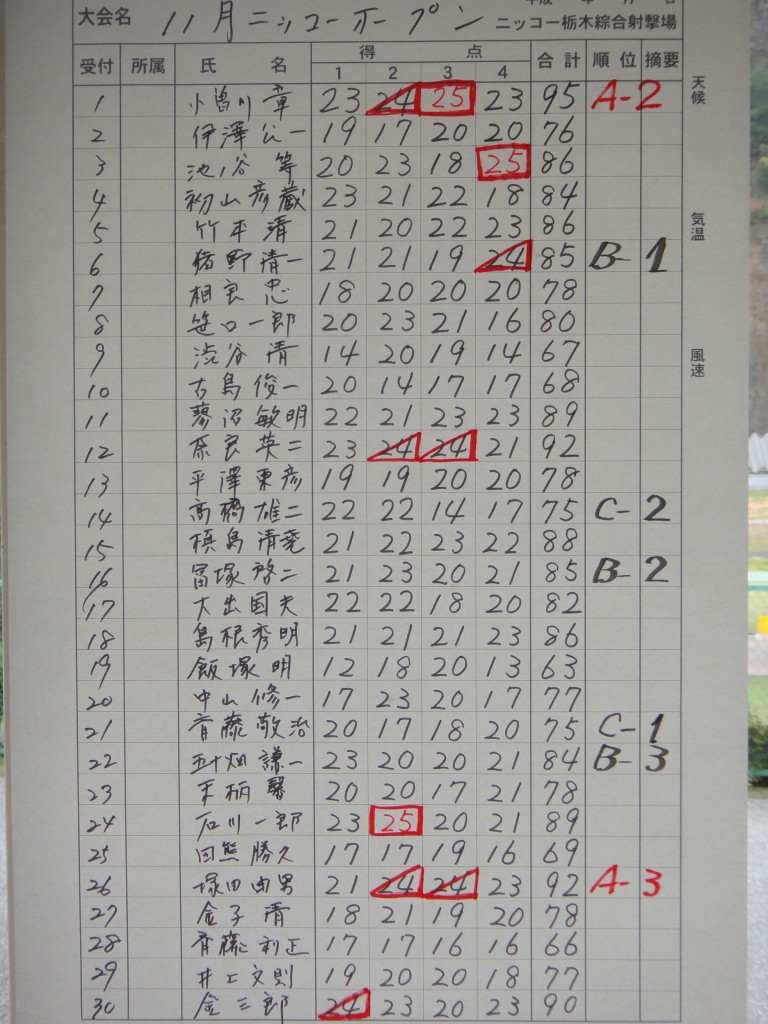 大会名 11月ニッコーオープン ニッコー栃木綜合射撃場
受付 所属 氏名 得点 合計 順位 摘要
1 2 3 4
1 小曽川 章 23 24 25 23 95 A-2
2 伊澤公一 19 17 20 20 76
3 池ノ谷 等 20 23 18 25 86
4 初山彦蔵 23 21 22 18 84
5 竹平 清 21 20 22 23 86
6 猪野清一 21 21 19 24 85 B-1
7 相良 忠 18 20 20 20 78
8 笹口一郎 20 23 21 16 80
9 渋谷 清 14 20 19 14 67
10 古島俊一 20 14 17 17 68
11 蓼沼敏明 22 21 23 23 89
12 奈良英二 23 24 24 21 92
13 平澤東彦 19 19 20 20 78
14 高橋雄二 22 22 14 17 75 C-2
15 槙島清尭 21 22 23 22 88
16 冨塚啓二 21 23 20 21 85 B-2
17 大出国夫 22 22 18 20 82
18 島根秀明 21 21 21 23 86
19 飯塚 明 12 18 20 13 63
20 中山修一 17 23 20 17 77
21 斉藤敬治 20 17 18 20 75 C-1
22 五十畑謙一 23 20 20 21 84 B-3
23 20 20 17 21 78
24 石川一郎 23 25 20 21 89
25 田熊勝久 17 17 19 16 69
26 塚田由男 21 24 24 23 92 A-3
27 金子 清 18 21 19 20 78
28 斉藤利正 17 17 16 16 66
29 井上文則 19 20 20 18 77
30 金三郎 24 23 20 23 90
天候
気温
風速